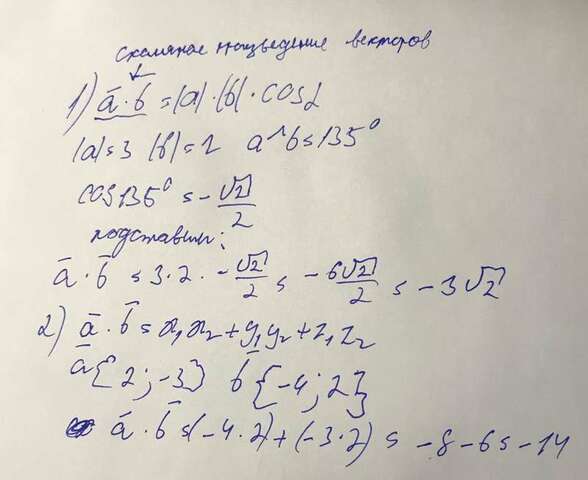 скалярное произведение векторов
1) ā · b̄ = |a| · |b| · cos α
|a| = 3 |b| = 2 a^b = 135°
cos 135° = -√2/2
подставим:
ā · b̄ = 3 · 2 · -√2/2 = -6√2/2 = -3√2
2) ā · b̄ = x₁x₂ + y₁y₂ + z₁z₂
ā{2; -3} b̄{-4; 2}
ā · b̄ = (-4 · 2) + (-3 · 2) = -8 - 6 = -14